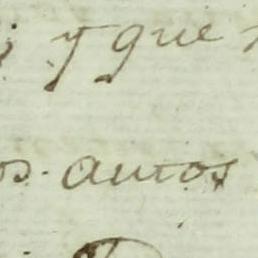 y que
os autos